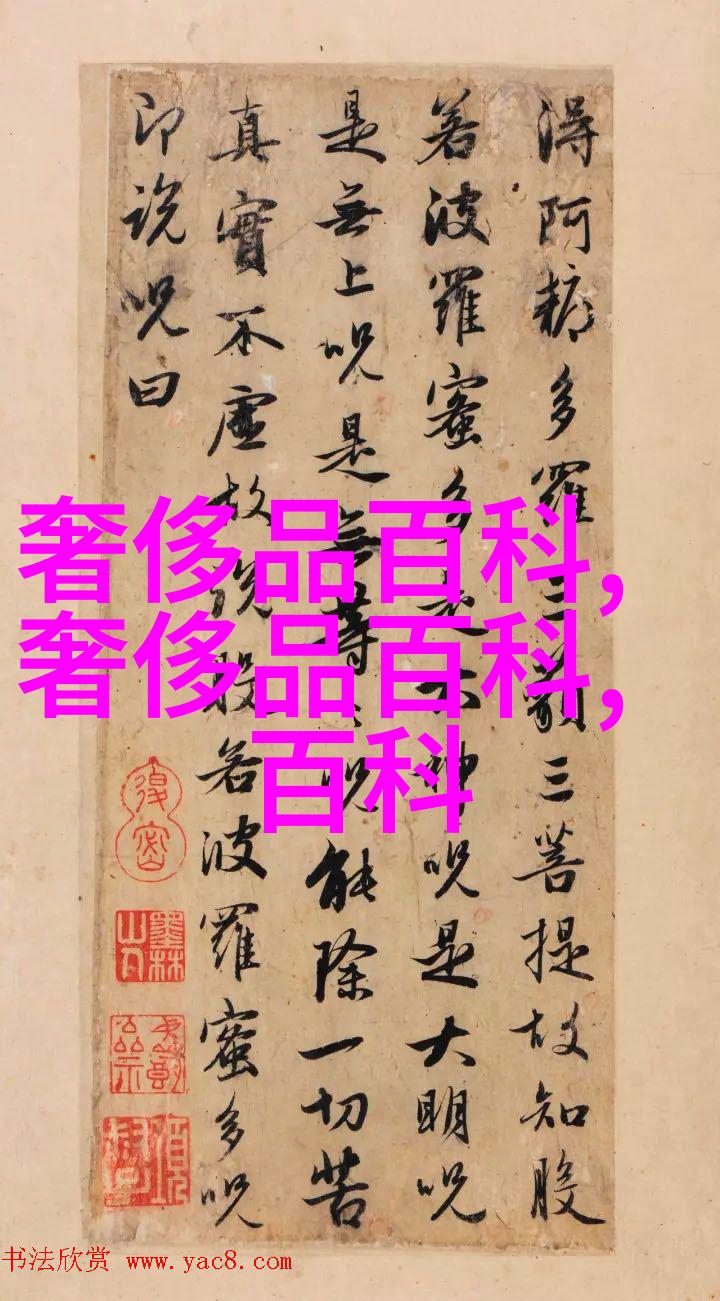 得阿耨多羅三藐三菩提故知般
若波羅蜜多是大神呪是大明呪
是無上呪是無等〻呪能除一切苦
真實不虛故説般若波羅蜜多呪
即説呪曰
墨林山人
奢侈品百科,
奢侈品百科,
百科
书法欣赏 www.yac8.com